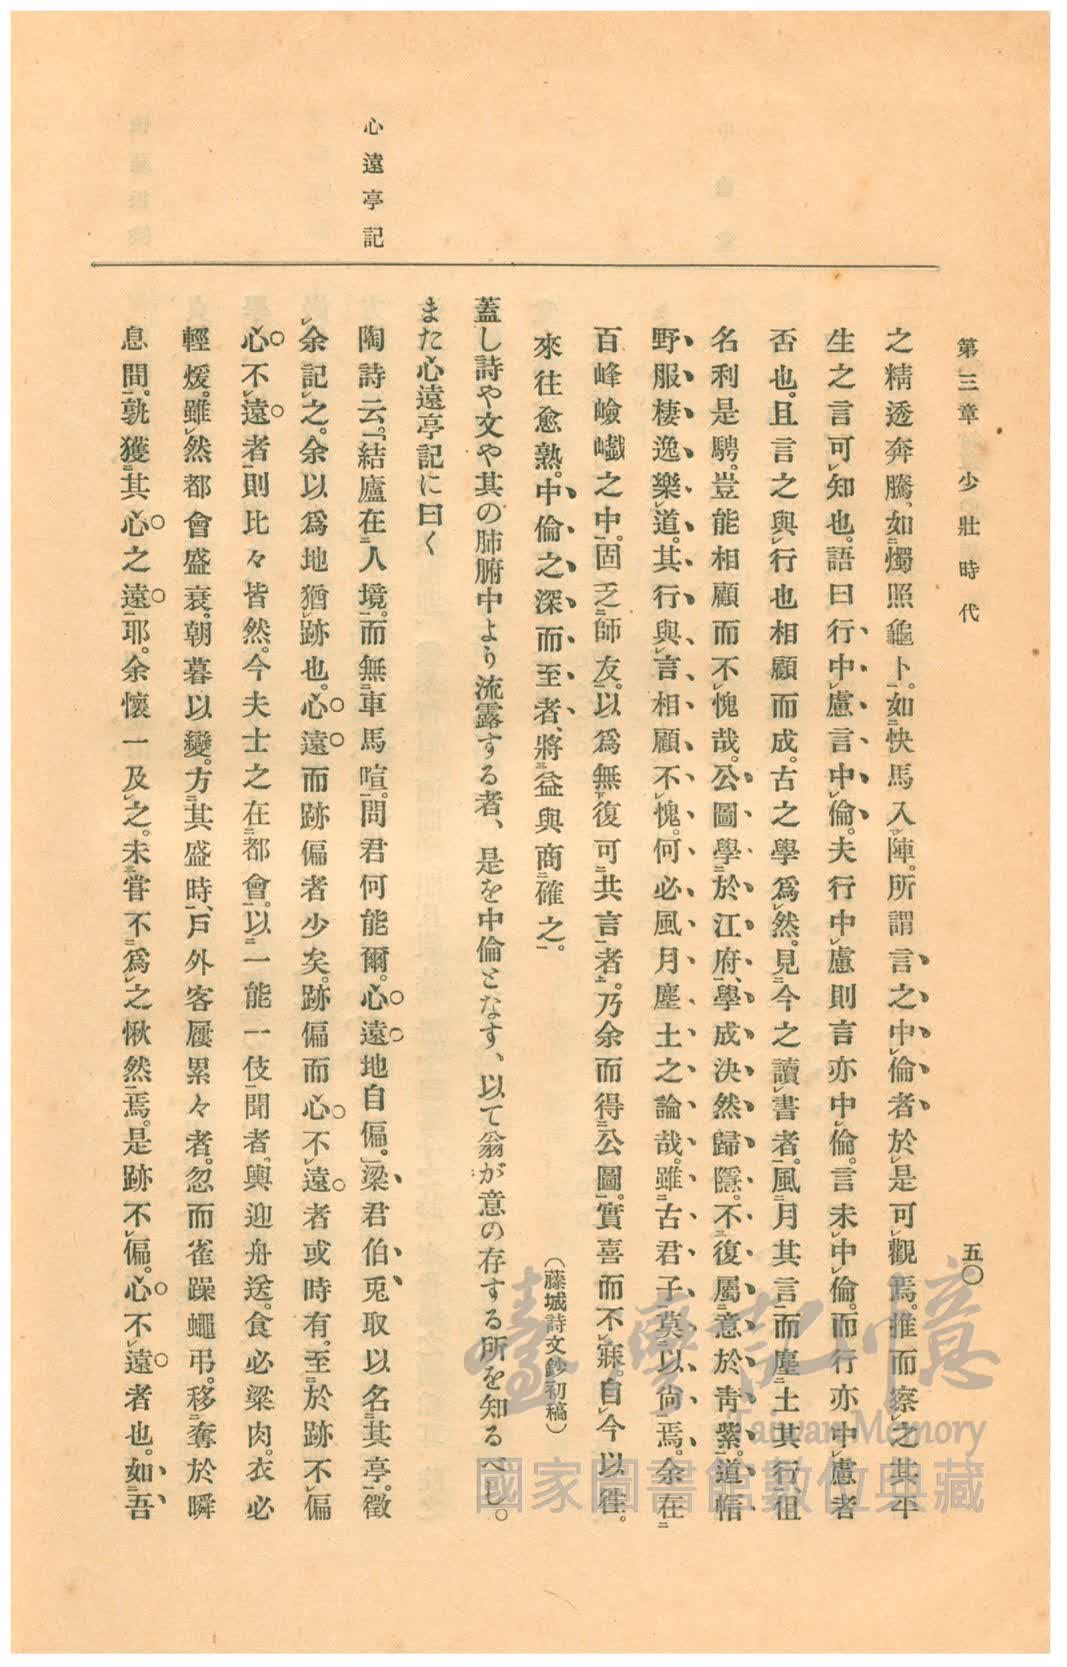 第三章　少壯時代
五〇
之精透奔騰、如燭照龜卜。如快馬入陣。所謂言之中倫者於是可觀焉。推而察之其平
生之言可知也。語曰行中慮言中倫。夫行中慮則言亦中倫。言未中倫。而行亦中慮者
否也。且言之與行也相顧而成。古之學爲然。見今之讀書者。風月其言而塵土其行。徂
名利是騁。豈能相顧而不愧哉。公圖學於江府、學成決然歸隱。不復屬意於靑紫。道帽
野服棲逸樂道。其行與言相顧不愧。何必風月塵土之論哉。雖古君子莫以尙焉。余在
百峰嶮巇之中。固乏師友。以爲無復可共言者。乃余而得公圖。實喜而不寐。自今以往。
來往愈熟。中倫之深而至者、將益與商確之。
（藤城詩文鈔初稿）
蓋し詩や文や其の肺腑中より流露する者、是を中倫となす、以て翁が意の存する所を知るべし。
また心遠亭記に曰く
心遠亭記
陶詩云。「結廬在人境。而無車馬喧。問君何能爾。心遠地自偏。」梁君伯兎取以名其亭。徵
余記之。余以爲地猶跡也。心遠而跡偏者少矣。跡偏而心不遠者或時有。至於跡不偏
心不遠者則比々皆然。今夫士之在都會。以一能一伎聞者。輿迎舟送。食必粱肉。衣必
輕煖。雖然都會盛衰。朝暮以變。方其盛時、戶外客屨累々者。忽而雀躁蠅弔。移奪於瞬
息間。孰獲其心之遠耶。余懷一及之。未嘗不爲之愀然焉。是跡不偏。心不遠者也。如吾
臺灣記憶
Taiwan Memory
國家圖書館數位典藏